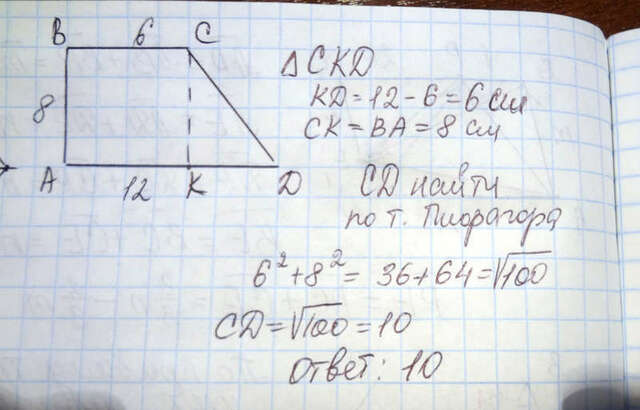 B 6 C
8
A 12 K D
Δ CKD
KD = 12 - 6 = 6 см
CK = BA = 8 см
CD найти
по т. Пифагора
6² + 8² = 36 + 64 = √100
CD = √100 = 10
ответ: 10